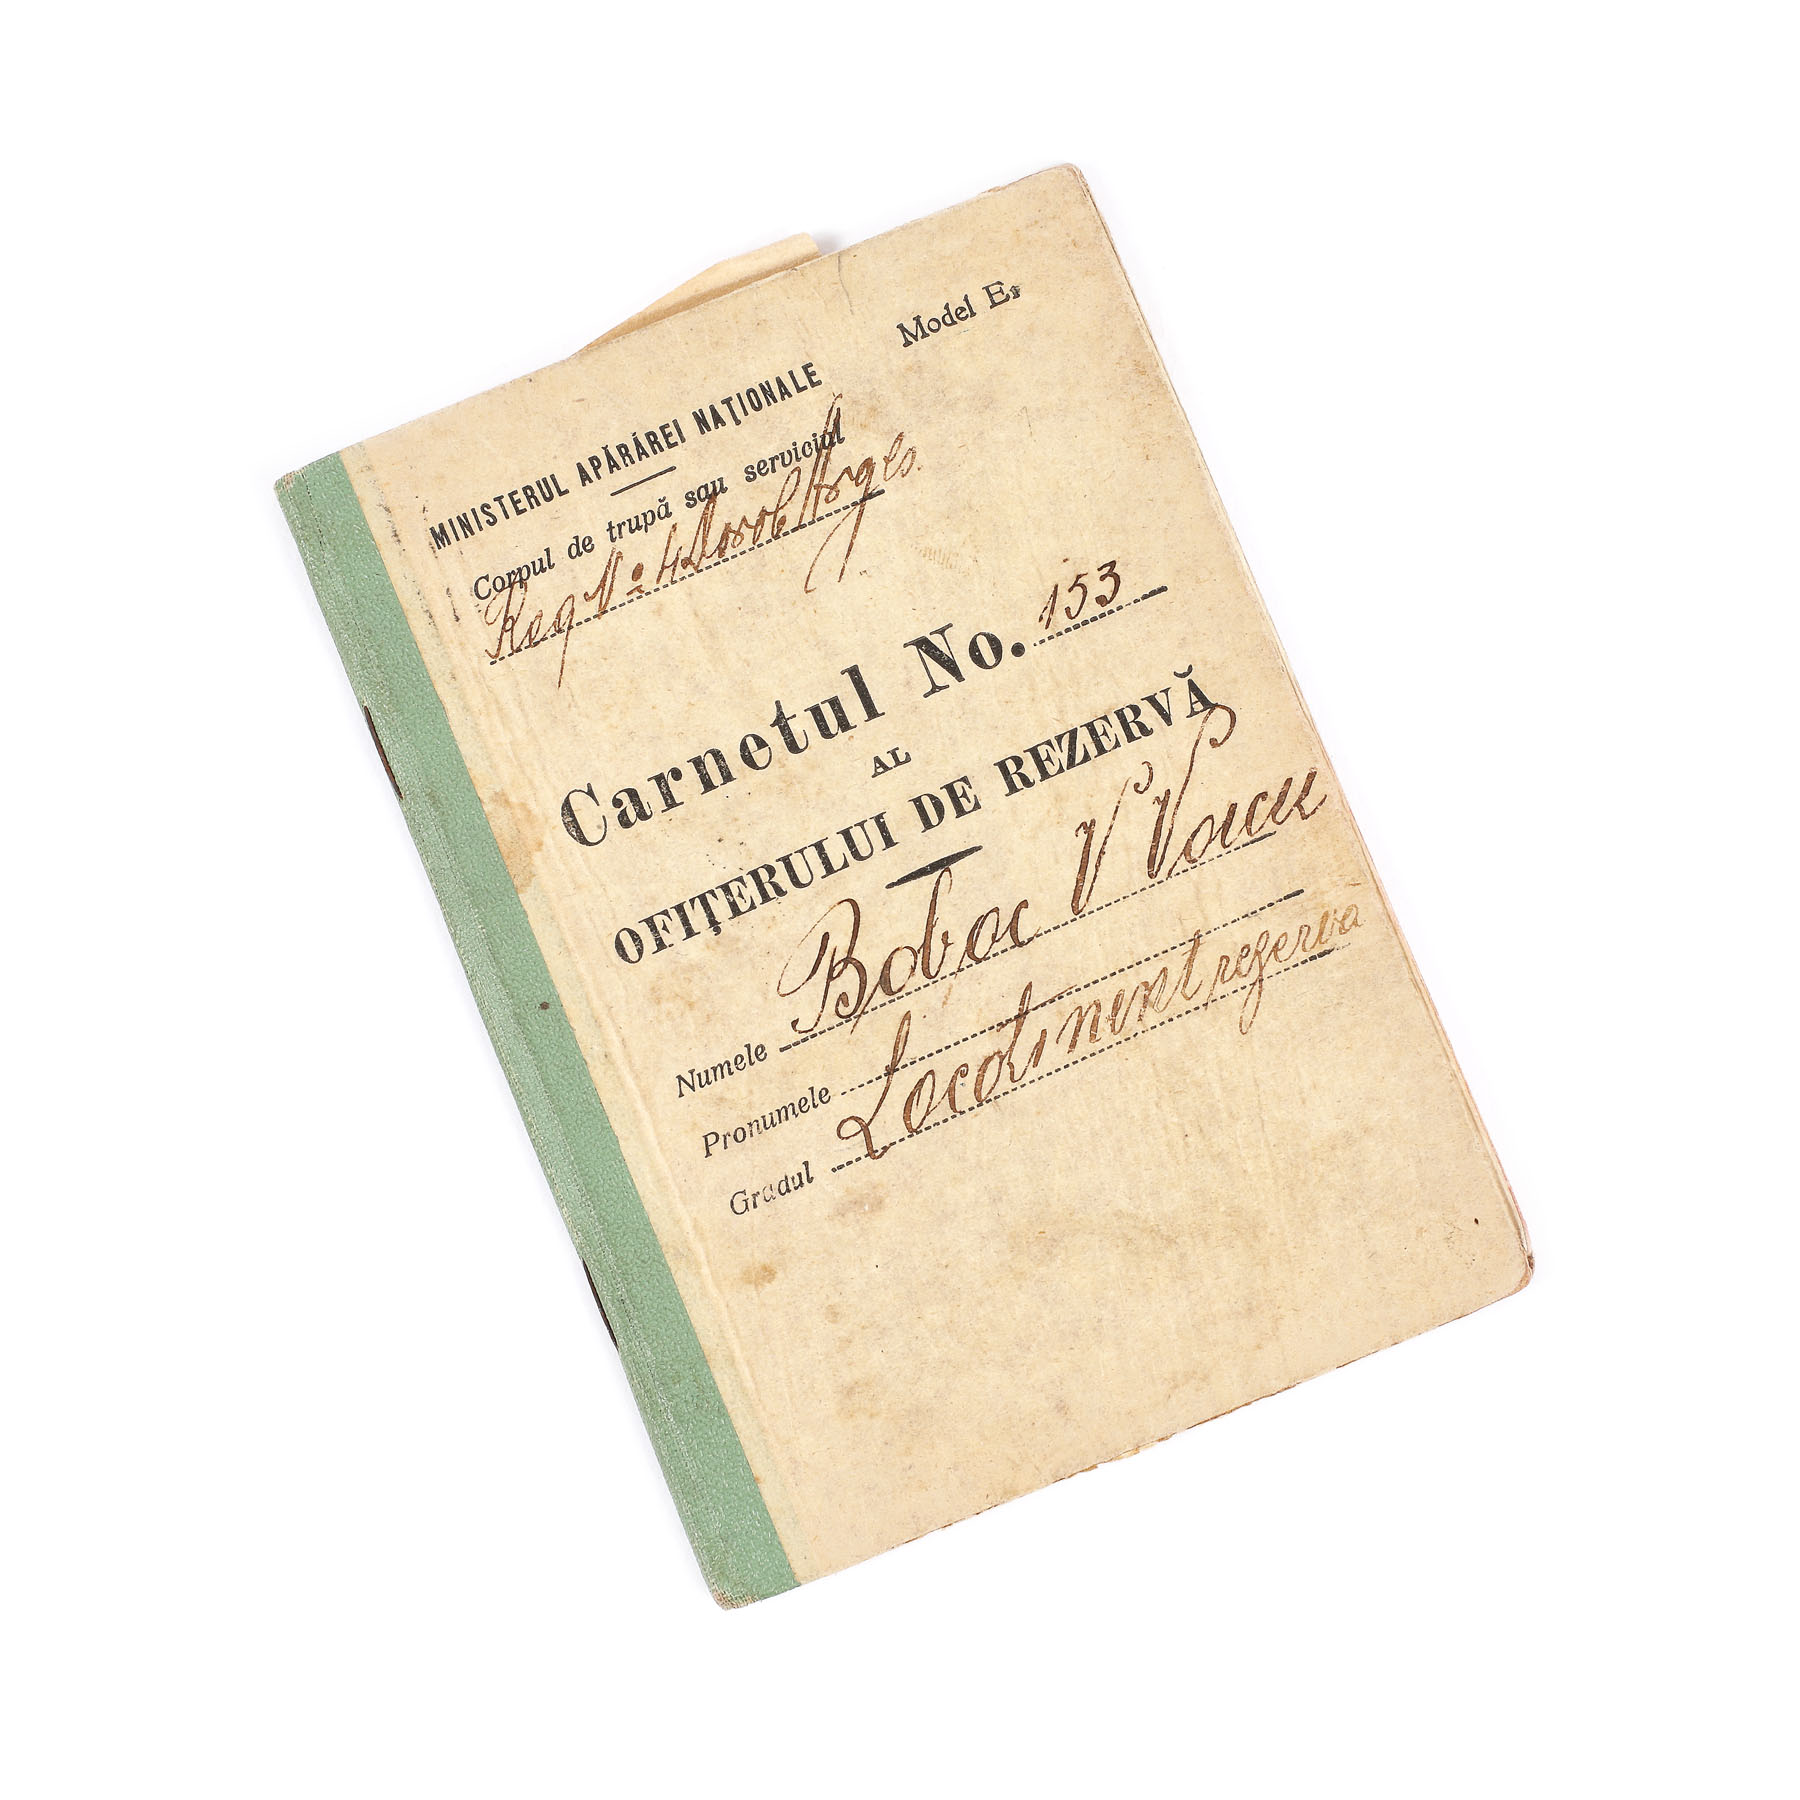 Model E₁
MINISTERUL APĂRĂREI NAŢIONALE
Corpul de trupă sau serviciul
Reg No 4 Dorob Argeș
Carnetul No. 153
AL
OFIŢERULUI DE REZERVĂ
Numele Boboc V Voicu
Pronumele
Gradul Locotinent rezerva